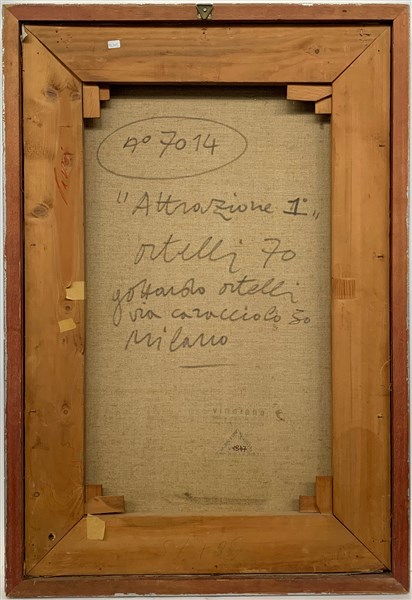 nº 7014
"Attrazione 1°„
ortelli 70
gottardo ortelli
via caracciolo 30
Milano